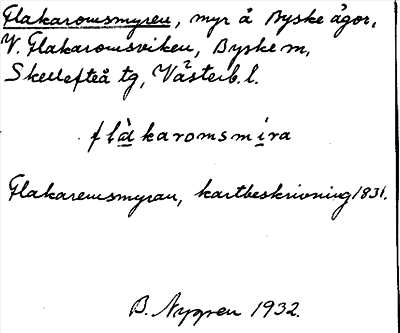 Flakaromsmyren, myr å Byske ägor,
V. Flakaromsviken, Byske m,
Skellefteå tg, Västerb. l.
flàkaromsmira
Flakaremsmyran, kartbeskrivning 1831.
B. Nyppen 1932.